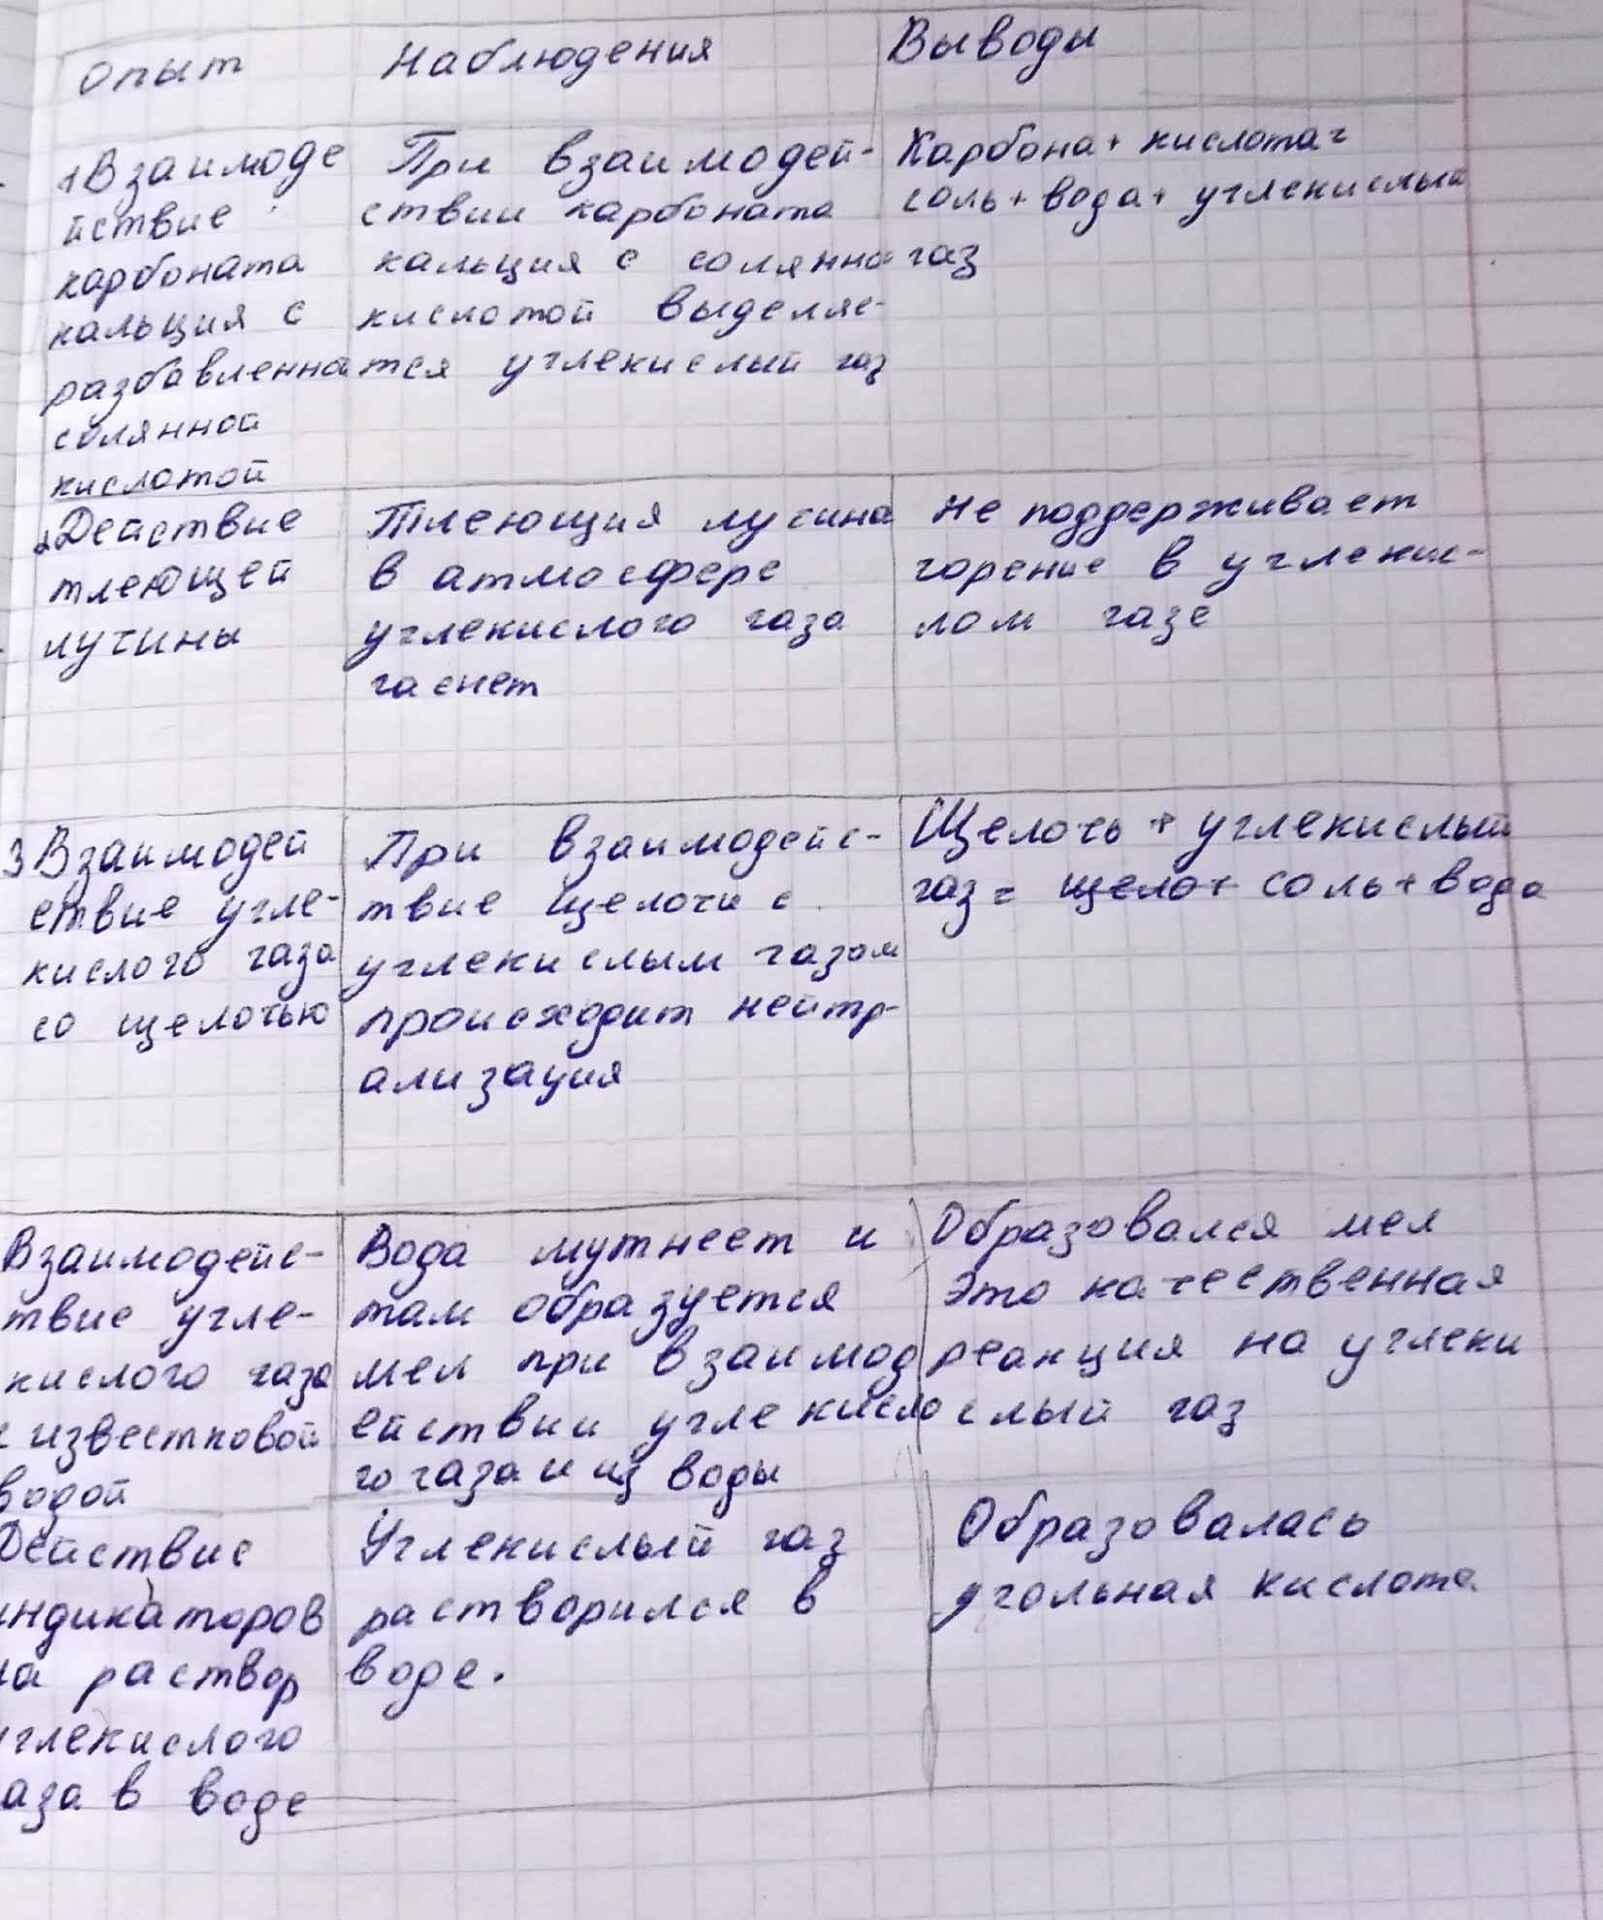 Опыт
Наблюдения
Выводы
1 Взаимоде
йствие
карбоната
кальция с
разбавленно
солянной
кислотой
При взаимодей-
ствии карбоната
кальция с солянно
кислотой выделяе-
тся углекислый газ
Карбона + кислота =
соль + вода + углекислый
газ
2 Действие
тлеющей
лучины
Тлеющия лусина
в атмосфере
углекислого газа
гаснет
Не поддерживает
горение в углекис-
лом газе
3 Взаимодей
ствие угле-
кислого газа
со щелочью
При взаимодейс-
твие щелочи с
углекислым газом
происходит нейтр-
ализация
Щелочь + углекислый
газ = щело+ соль + вода
Взаимодейс-
твие угле-
кислого газа
с известковой
водой
Вода мутнеет и
там образуется
мел при взаимод
ействии углекисло
го газа и из воды
Образовался мел
Это качественная
реакция на углеки
слый газ
Действие
индикаторов
на раствор
углекислого
аза в воде
Углекислый газ
растворился в
воде.
Образовалась
угольная кислота